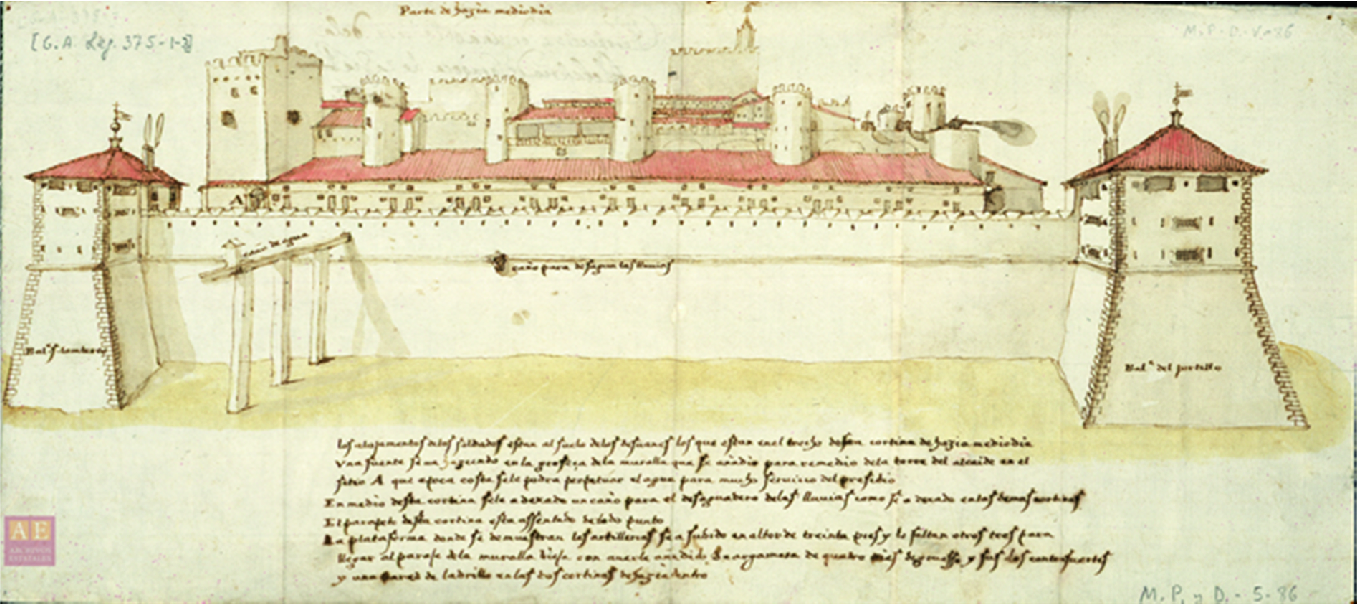 Parte de hazia mediodia
[G. A. Leg. 375-1-8]
M. P. D. V. - 86
A
caño de agua
caño para desaguar las lluvias
Bal.te
Bal.te del portillo
los alojamentos delos soldados estan al suelo delos desuanes los que estan en el trecho desta cortina de hazia mediodia
Una fuente se a en la grosseza dela muralla que se añadio para remedio dela torre del alcaide en el
sitio A que a poca costa se le podra perpetuar el agua para mucho seruicio del presidio
En medio desta cortina se le a dexado un caño para el desaguadero delas lluuias como se a dexado en las demas cortinas
El parapeto desta cortina esta assentado de todo punto
La plataforma donde se demuestran los artillerias se a subido en altor de treinta pies y le faltan otros tres para
llegar al paraje de la muralla vieja con añadido de argamasa de quatro pies de gruessa y sus dos contrafuertes
y una pared de ladrillo en las dos cortinas de hazia dentro
AE
ARCHIVOS
ESTATALES
M. P. y D. - 5 - 86